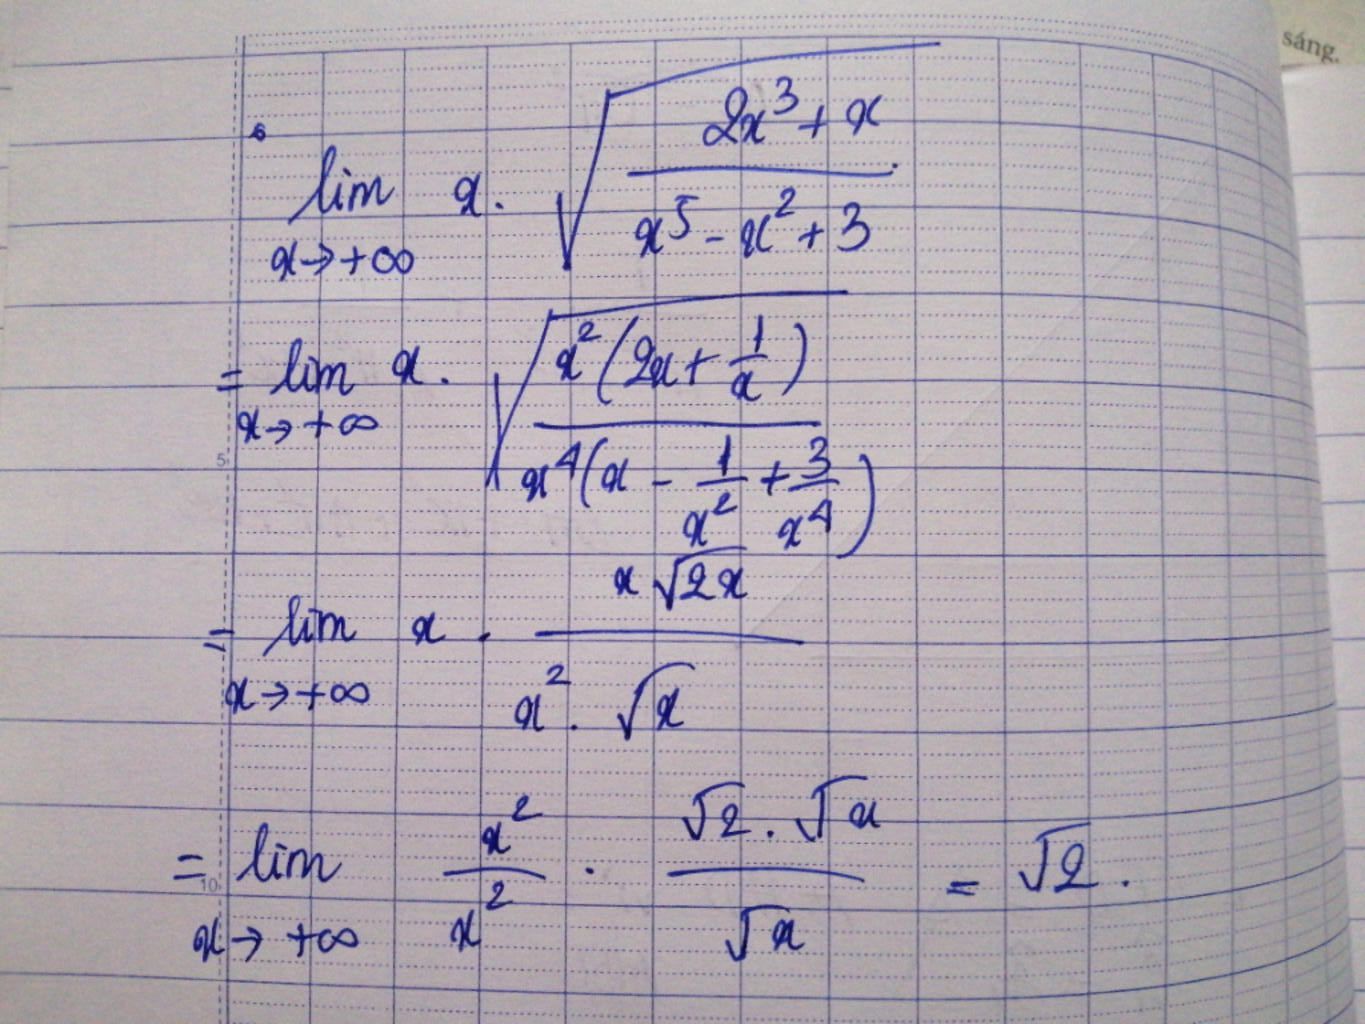 sáng.
lim x→+∞ x. √((2x³ + x)/(x⁵ - x² + 3))
= lim x→+∞ x. √((x²(2x + 1/x))/(x⁴(x - 1/x² + 3/x⁴)))
= lim x→+∞ x . (x √2x)/(x² . √x)
= lim x→+∞ x²/x² . (√2 . √x)/√x = √2 .
5
10